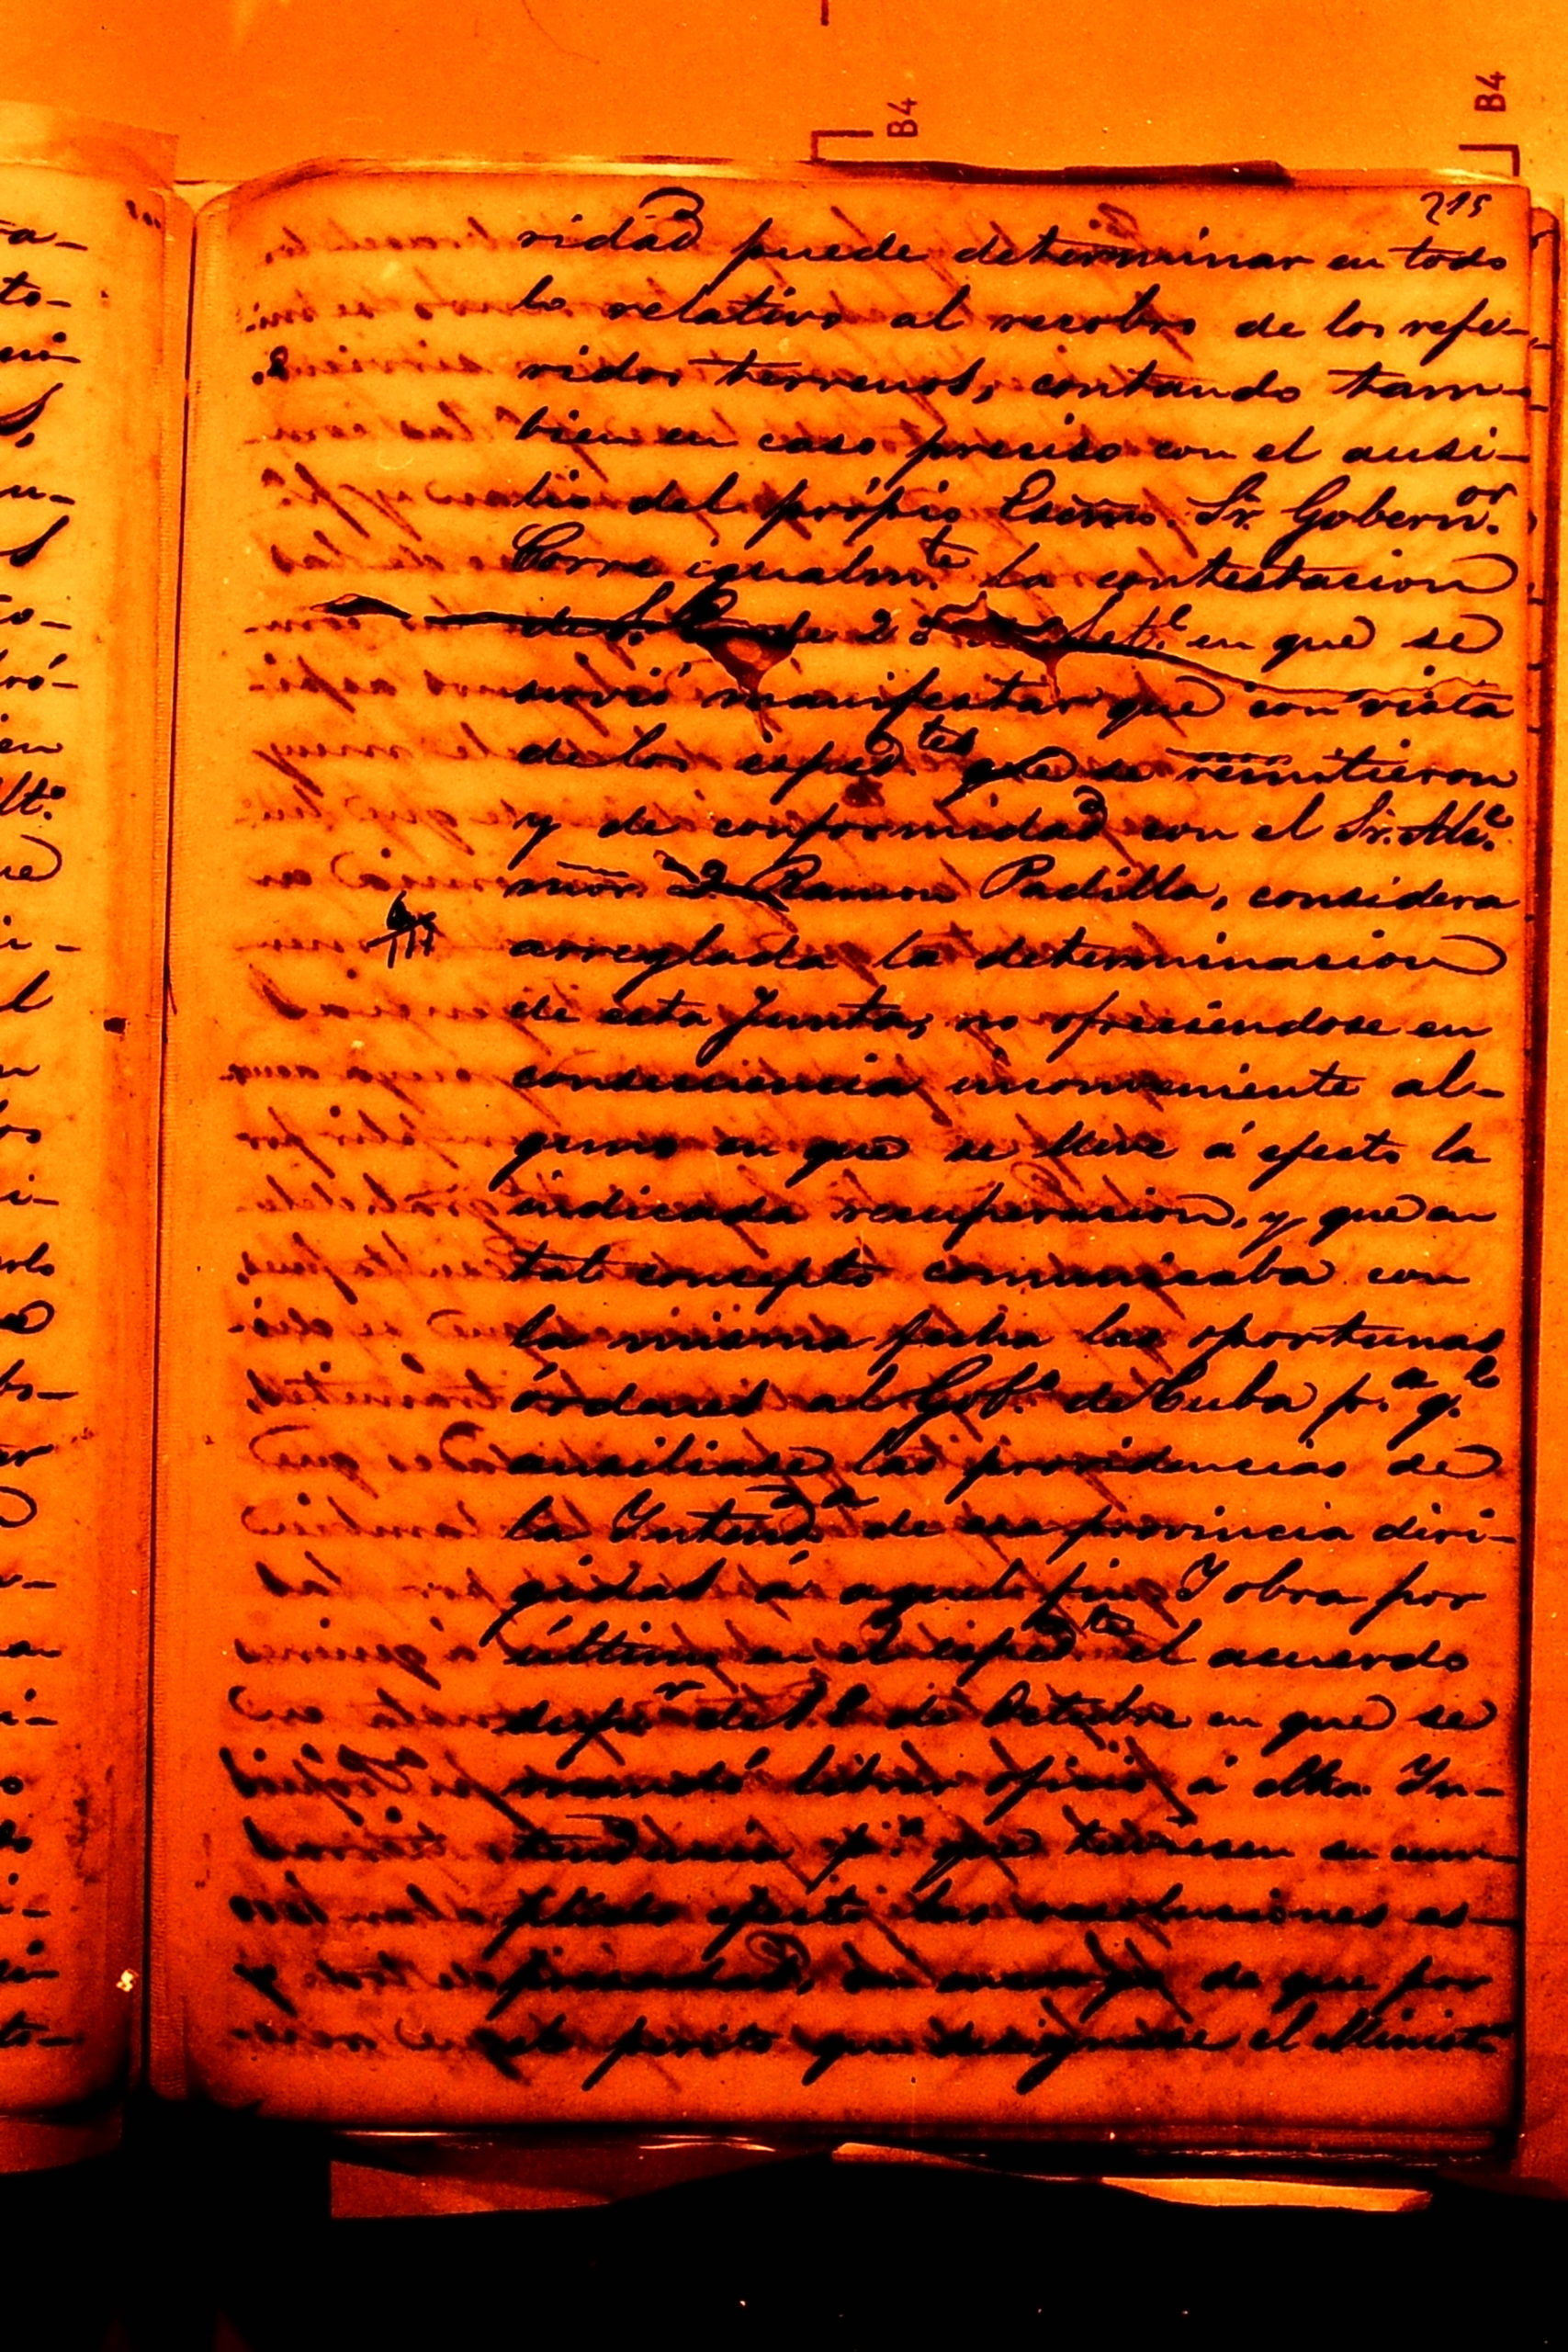 B4
B4
215
ridad puede determinar en todo
lo relativo al recobro de los refe-
ridos terrenos, contando tam-
bien en caso preciso con el ausi-
lio del própio Escmo. Sr. Gobernor.
Corre igualmte la contestacion
de S. E. de 2 Sete. en que se
sirvió manifestar que con vista
de los espedtes que se remitieron
y de conformidad con el Sr. Alce.
mór. D. Ramon Padilla, considera
arreglada la determinacion
de esta Junta, no ofreciendose en
consecuencia inconveniente al-
guno en que se lleve á efecto la
indicada recuperacion, y que en
tal concepto comunicaba con
la misma fecha las oportunas
órdenes al Gobo. de Cuba pa. qe.
ausiliase las providencias de
la Intenda. de esa provincia diri-
gidas á aquel fin. Y obra por
último en el espedte el acuerdo
supr. de de Octubre en que se
mandó librar oficio á dha. In-
tendencia pa. que tubiesen su cum-
plido efecto las resoluciones es-
presadas, en de que por
el perito que designase el Minist